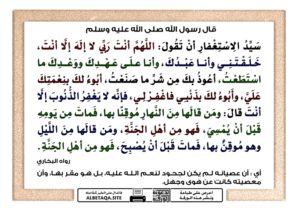 قال رسول الله صلى الله عليه وسلم
سَيِّدُ الِاسْتِغْفَارِ أَنْ تَقُولَ: اللَّهُمَّ أَنْتَ رَبِّي لَا إِلَهَ إِلَّا أَنْتَ،
خَلَقْتَنِي وَأَنَا عَبْدُكَ، وَأَنَا عَلَى عَهْدِكَ وَوَعْدِكَ مَا
اسْتَطَعْتُ، أَعُوذُ بِكَ مِنْ شَرِّ مَا صَنَعْتُ، أَبُوءُ لَكَ بِنِعْمَتِكَ
عَلَيَّ، وَأَبُوءُ لَكَ بِذَنْبِي فَاغْفِرْ لِي، فَإِنَّهُ لَا يَغْفِرُ الذُّنُوبَ إِلَّا
أَنْتَ قَالَ: وَمَنْ قَالَهَا مِنَ النَّهَارِ مُوقِنًا بِهَا، فَمَاتَ مِنْ يَوْمِهِ
قَبْلَ أَنْ يُمْسِيَ، فَهُوَ مِنْ أَهْلِ الجَنَّةِ، وَمَنْ قَالَهَا مِنَ اللَّيْلِ
وَهُوَ مُوقِنٌ بِهَا، فَمَاتَ قَبْلَ أَنْ يُصْبِحَ، فَهُوَ مِنْ أَهْلِ الجَنَّةِ.
رواه البخاري
أي: أن عصيانه لم يكن لجحود نعم الله عليه، بل هو مقر بها، وأن
معصيته كانت عن هوى وجهل.
ALBETAQA.SITE